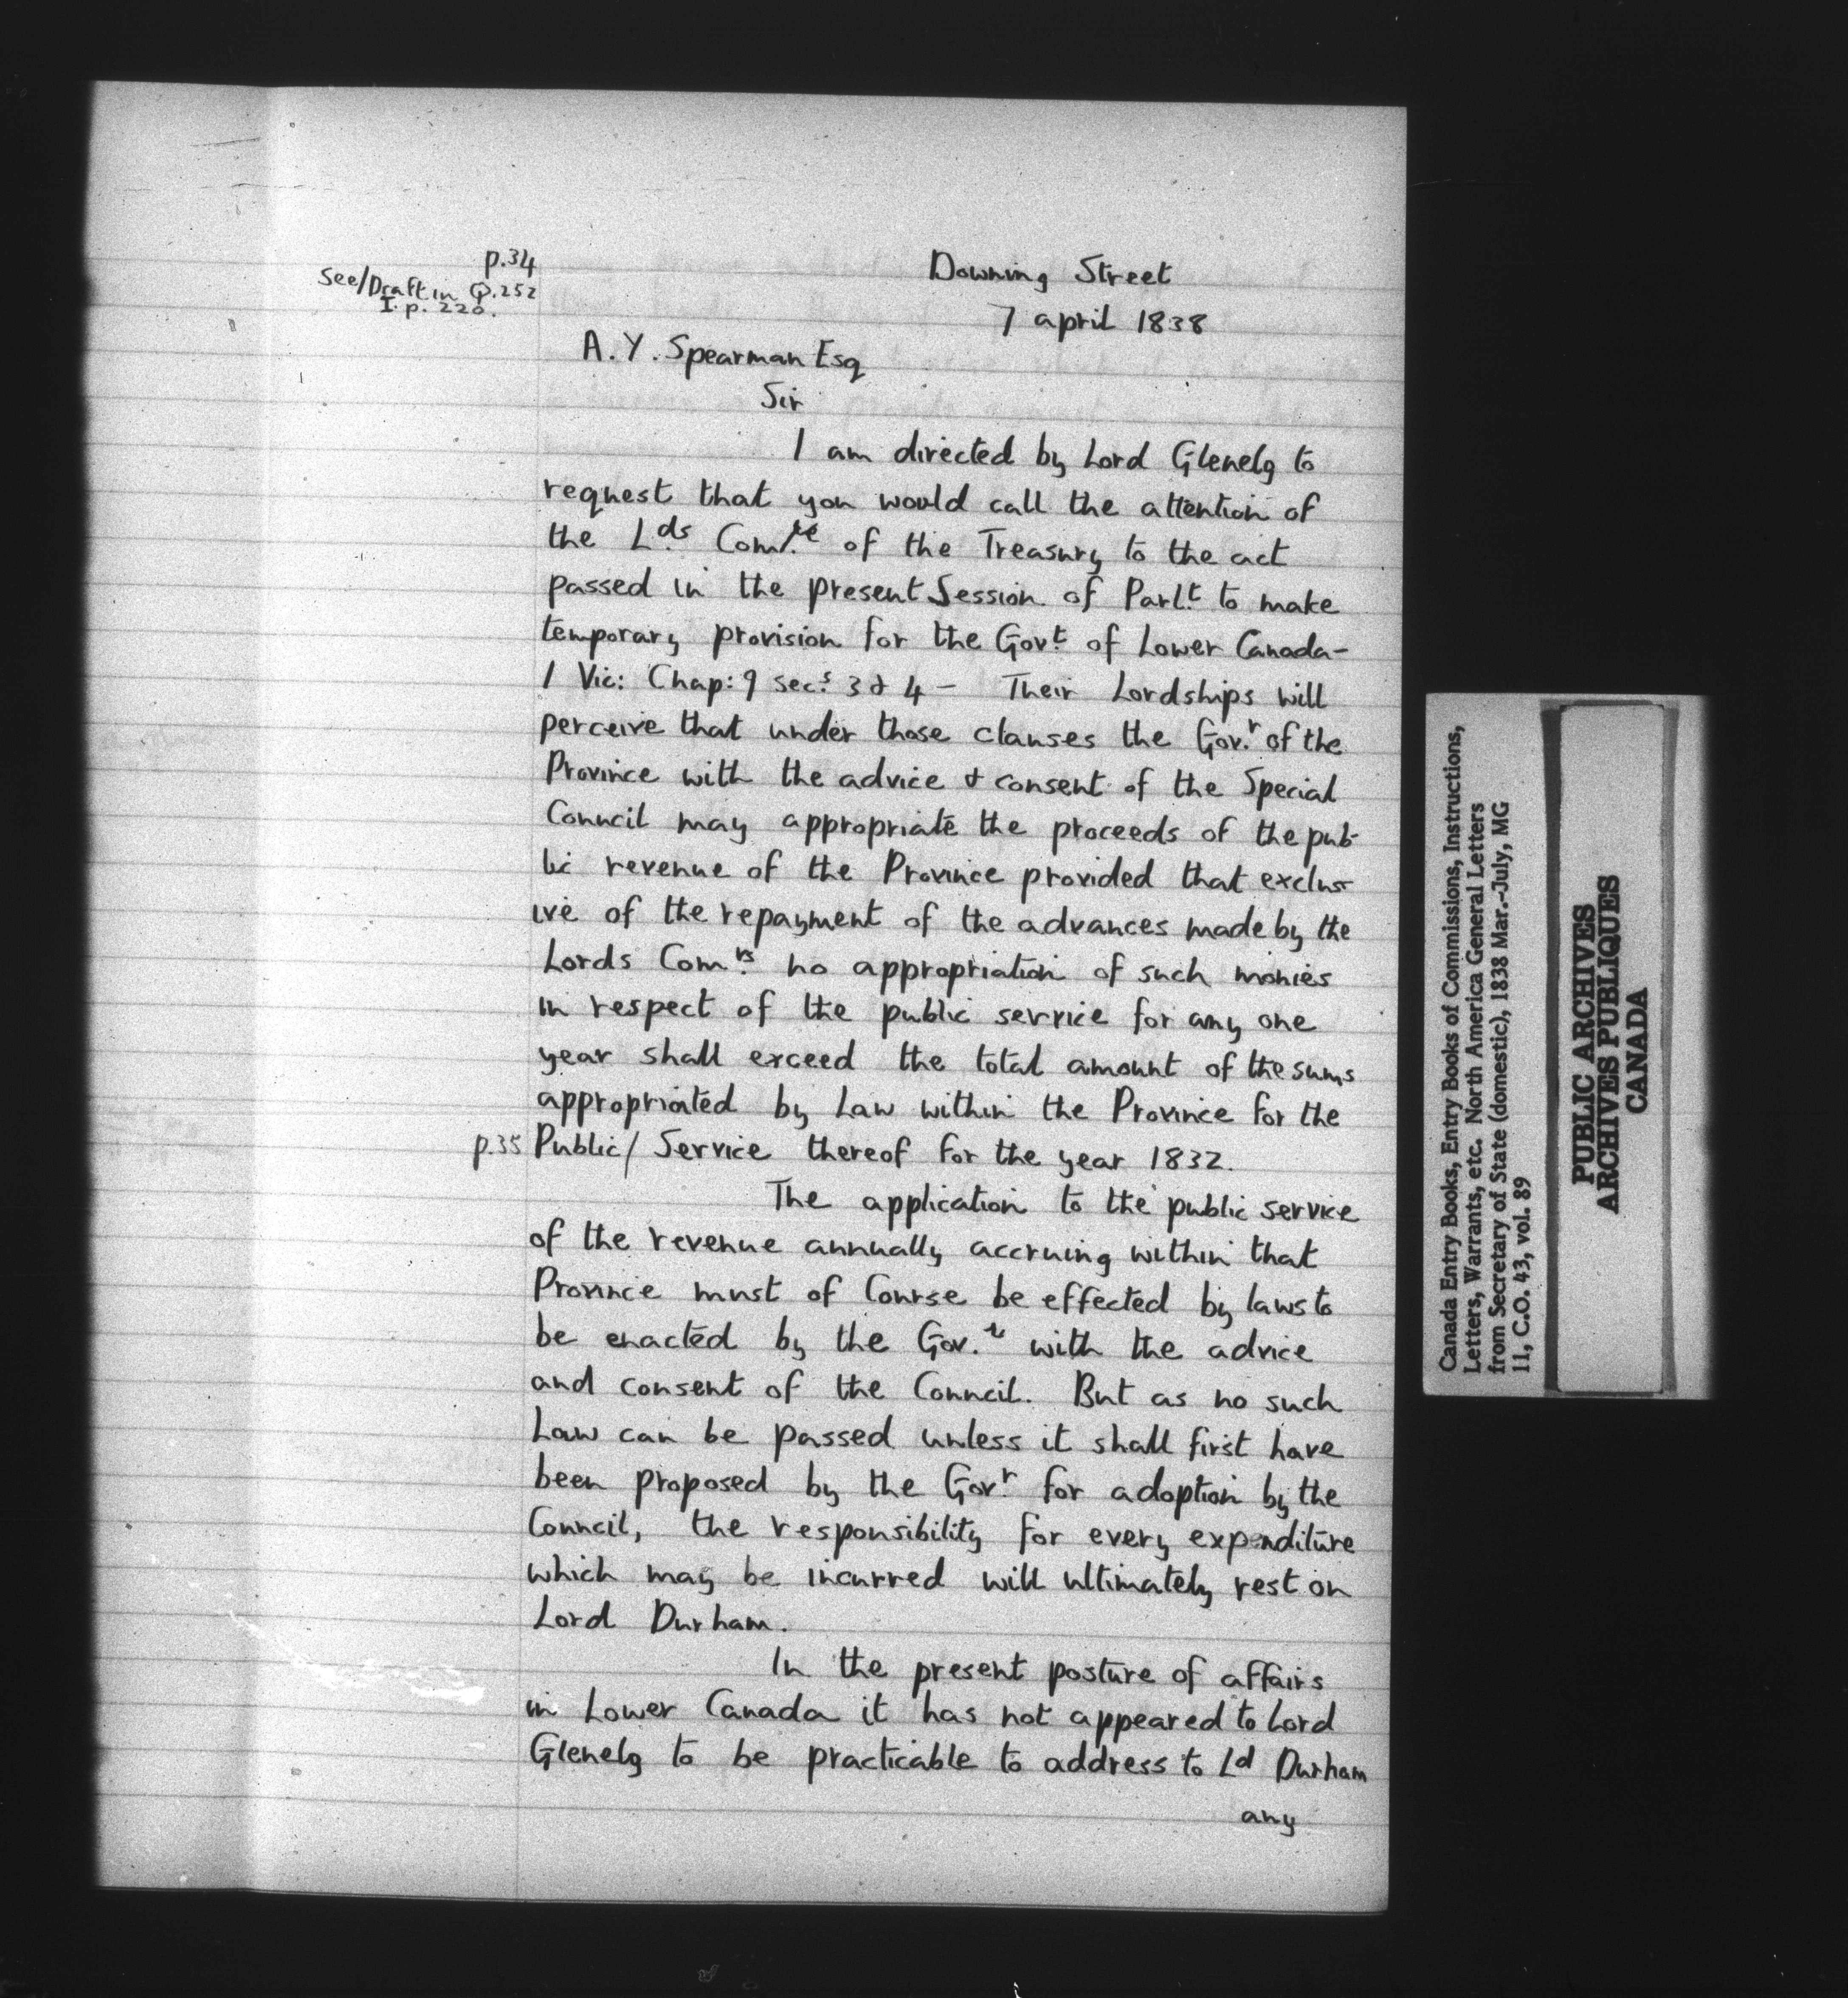 p.34
See/Draft in Q.252
I. p. 220.
Downing Street
7 april 1838
A. Y. Spearman Esq
Sir
I am directed by Lord Glenelg to
request that you would call the attention of
the Lds Com.re of the Treasury to the act
passed in the present Session of Parl.t to make
temporary provision for the Gov.t of Lower Canada-
1 Vic: Chap: 9 sec.s 3 & 4 - Their Lordships will
perceive that under those clauses the Gov.r of the
Province with the advice & consent of the Special
Council may appropriate the proceeds of the pub-
lic revenue of the Province provided that exclus-
ive of the repayment of the advances made by the
Lords Com.rs no appropriation of such monies
in respect of the public service for any one
year shall exceed the total amount of the sums
appropriated by Law within the Province for the
p.35 Public/ Service thereof for the year 1832.
The application to the public service
of the revenue annually accruing within that
Province must of Course be effected by laws to
be enacted by the Gov.r with the advice
and consent of the Council. But as no such
Law can be passed unless it shall first have
been proposed by the Gov.r for adoption by the
Council, the responsibility for every expenditure
which may be incurred will ultimately rest on
Lord Durham.
In the present posture of affairs
in Lower Canada it has not appeared to Lord
Glenelg to be practicable to address to Ld Durham
any
Canada Entry Books, Entry Books of Commissions, Instructions,
Letters, Warrants, etc. North America General Letters
from Secretary of State (domestic), 1838 Mar.-July, MG
11, C.O. 43, vol. 89
PUBLIC ARCHIVES
ARCHIVES PUBLIQUES
CANADA